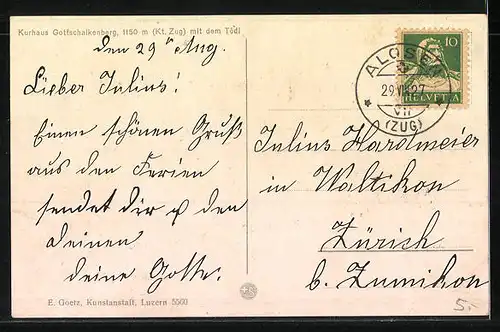 Kurhaus Gottschalkenberg, 1150 m (Kt. Zug) mit dem Tödi
den 29. Aug.
Lieber Julius!
Einen schönen Gruß
aus den Ferien
sendet dir u den
deinen
deine Gotte.
E. Goetz, Kunstanstalt, Luzern 5560
10
HELVETIA
ALOSEN
29.VIII.27
(ZUG)
Julius Hardmeier
in Waltikon
Zürich
b. Zumikon
5.-